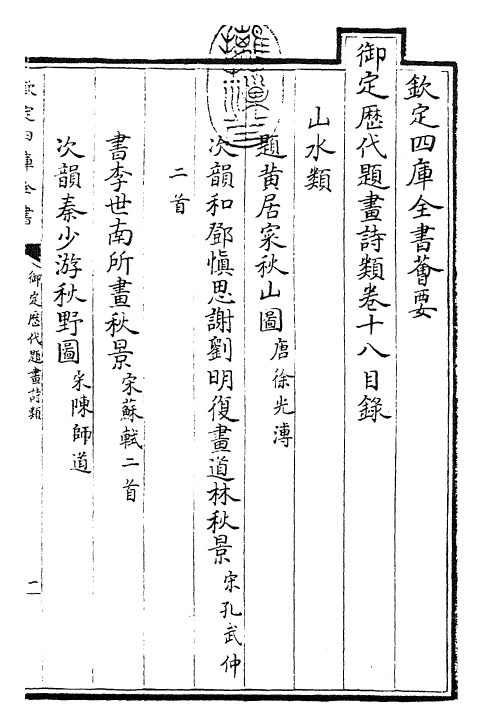 欽定四庫全書薈要
御定歷代題畫詩類卷十八目錄
山水類
題黄居寀秋山圖唐徐光溥
次韻和鄧愼思謝劉明復畫道林秋景宋孔武仲
二首
書李世南所畫秋景宋蘇軾二首
次韻秦少游秋野圖宋陳師道
欽定四庫全書
御定歷代題畫詩類
一